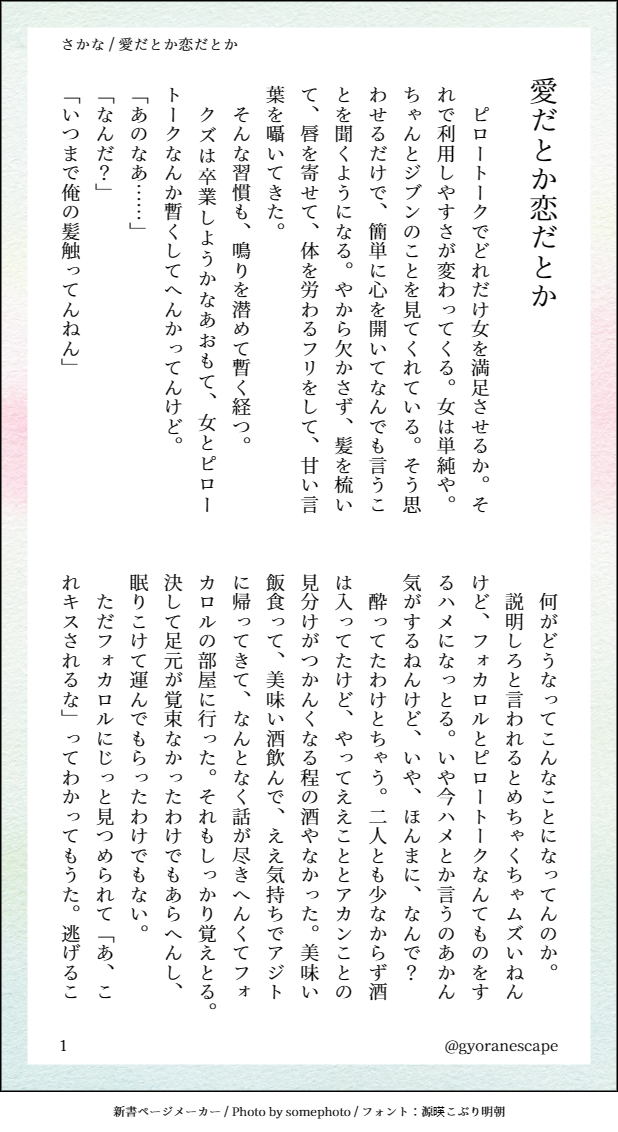 さかな / 愛だとか恋だとか
愛だとか恋だとか
　ピロートークでどれだけ女を満足させるか。そ
れで利用しやすさが変わってくる。女は単純や。
ちゃんとジブンのことを見てくれている。そう思
わせるだけで、簡単に心を開いてなんでも言うこ
とを聞くようになる。やから欠かさず、髪を梳い
て、唇を寄せて、体を労わるフリをして、甘い言
葉を囁いてきた。
　そんな習慣も、鳴りを潜めて暫く経つ。
　クズは卒業しようかなあおもて、女とピロー
トークなんか暫くしてへんかってんけど。
「あのなあ……」
「なんだ？」
「いつまで俺の髪触ってんねん」
　何がどうなってこんなことになってんのか。
　説明しろと言われるとめちゃくちゃムズいねん
けど、フォカロルとピロートークなんてものをす
るハメになっとる。いや今ハメとか言うのあかん
気がするねんけど、いや、ほんまに、なんで？
　酔ってたわけとちゃう。二人とも少なからず酒
は入ってたけど、やってええこととアカンことの
見分けがつかんくなる程の酒やなかった。美味い
飯食って、美味い酒飲んで、ええ気持ちでアジト
に帰ってきて、なんとなく話が尽きへんくてフォ
カロルの部屋に行った。それもしっかり覚えとる。
決して足元が覚束なかったわけでもあらへんし、
眠りこけて運んでもらったわけでもない。
　ただフォカロルにじっと見つめられて「あ、こ
れキスされるな」ってわかってもうた。逃げるこ
1
@gyoranescape
新書ページメーカー / Photo by somephoto / フォント：源暎こぶり明朝